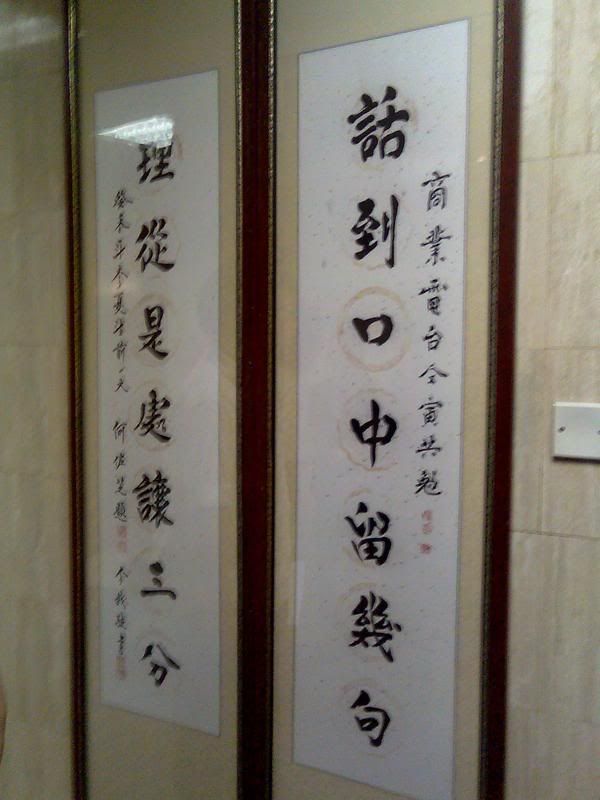 商業電台仝寅共勉
話到口中留幾句
理從是處讓三分
癸未年 前一天 何佐芝題